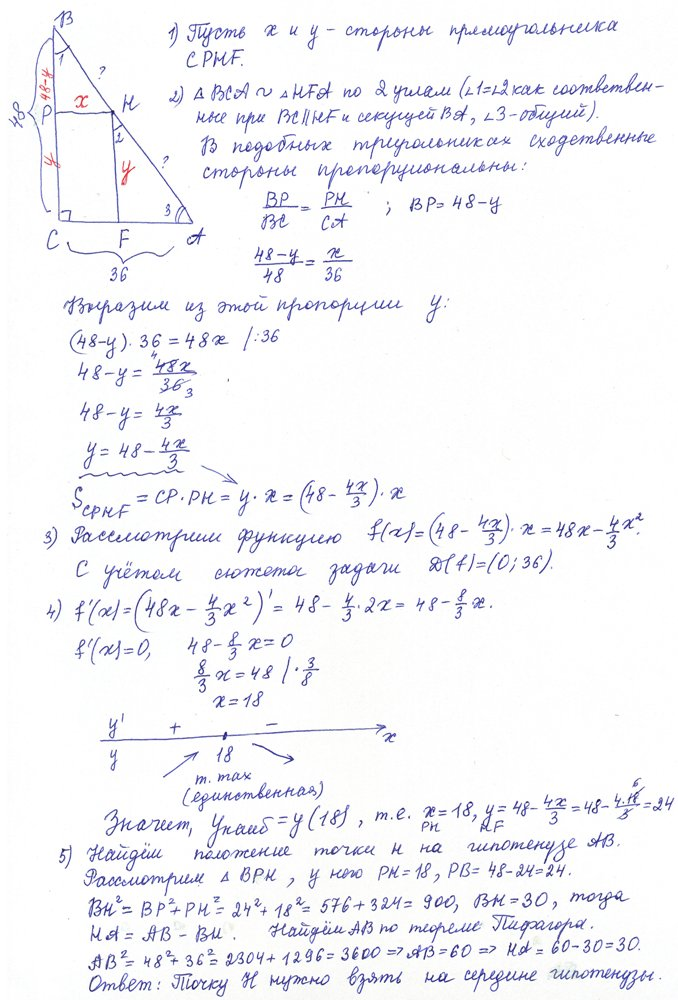 B
1
?
48-y
48
P
x
H
2
y
y
?
3
C
F
A
36
1) Пусть x и y - стороны прямоугольника
CPHF.
2) △BCA ~ △HFA по 2 углам (∠1=∠2 как соответствен-
ные при BC∥HF и секущей BA, ∠3-общий).
В подобных треугольниках сходственные
стороны пропорциональны:
BP/BC = PH/CA ; BP = 48-y
48-y/48 = x/36
Выразим из этой пропорции y:
(48-y)·36 = 48x /:36
48-y = 48x/36 4 3
48-y = 4x/3
y = 48 - 4x/3
S_CPHF = CP·PH = y·x = (48 - 4x/3)·x
3) Рассмотрим функцию f(x) = (48 - 4x/3)·x = 48x - 4/3 x².
С учётом сюжета задачи D(f) = (0; 36).
4) f'(x) = (48x - 4/3 x²)' = 48 - 4/3·2x = 48 - 8/3 x.
f'(x) = 0, 48 - 8/3 x = 0
8/3 x = 48 /·3/8
x = 18
y' + - x
y 18
т. max
(единственная)
Значит, yнаиб = y(18), т.е. x = 18, y = 48 - 4x/3 = 48 - 4·18/3 = 24
6
PH HF
5) Найдём положение точки H на гипотенузе AB.
Рассмотрим △BPH, у него PH = 18, PB = 48-24 = 24.
BH² = BP² + PH² = 24² + 18² = 576 + 324 = 900, BH = 30, тогда
HA = AB - BH. Найдём AB по теореме Пифагора.
AB² = 48² + 36² = 2304 + 1296 = 3600 => AB = 60 => HA = 60 - 30 = 30.
Ответ: Точку H нужно взять на середине гипотенузы.